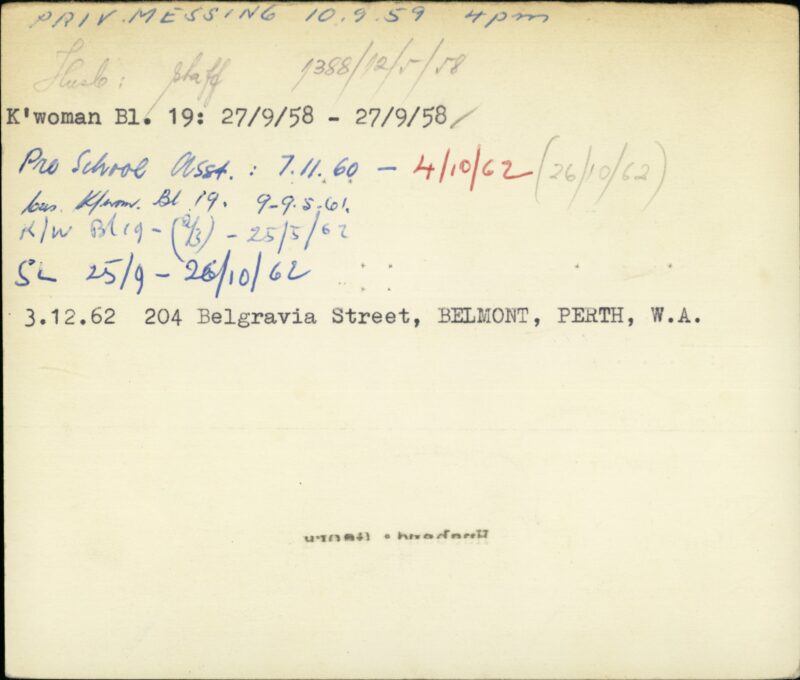 PRIV. MESSING 10.9.59 4pm
Husb: staff 1388/12/5/58
K'woman Bl. 19: 27/9/58 - 27/9/58/
Pre School Asst. : 7.11.60 - 4/10/62 (26/10/62)
Bl 19. 9-9.5.61.
K/W Bl 19 - (2/3) - 25/5/62
SL 25/9 - 26/10/62
3.12.62 204 Belgravia Street, BELMONT, PERTH, W.A.
Husband: